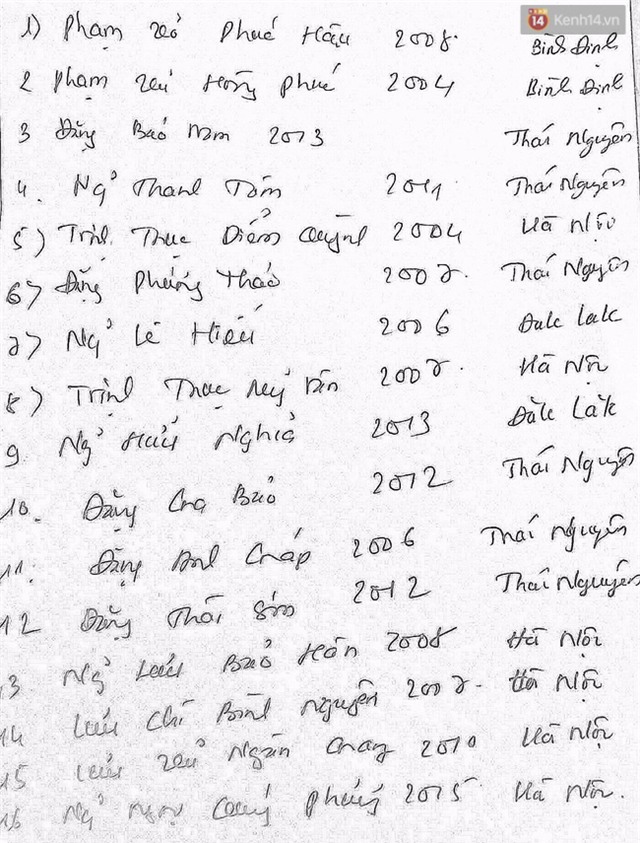 14 Kenh14.vn
1) Phạm Phúc Hậu 2008. Bình Định
2 Phạm Hồng Phúc 2004 Bình Định
3 Đặng Bảo Nam 2013 Thái Nguyên
4. Ng̉ Thanh Tâm 2011. Thái Nguyên
5) Trịnh Thục Diễm Quỳnh 2004 Hà Nội
6) Đặng Phương Thảo 2007. Thái Nguyên
7) Ng̉ Lê Hiếu 2006 Đăk Lăk
8) Trịnh Thục 2007. Hà Nội
9 Ng̉ Hữu Nghĩa 2013 Đăk Lăk
10. Đặng Gia Bảo 2012 Thái Nguyên
11. Đặng 2006 Thái Nguyên
12 Đặng Thái Sơn 2012 Thái Nguyên
13 Ng̉ Lưu Bảo Hân 2008 Hà Nội
14 Lưu Chí Bình Nguyên 2007. Hà Nội
15 Lưu Ngân Giang 2010 Hà Nội
16 Ng̉ 2015 Hà Nội.